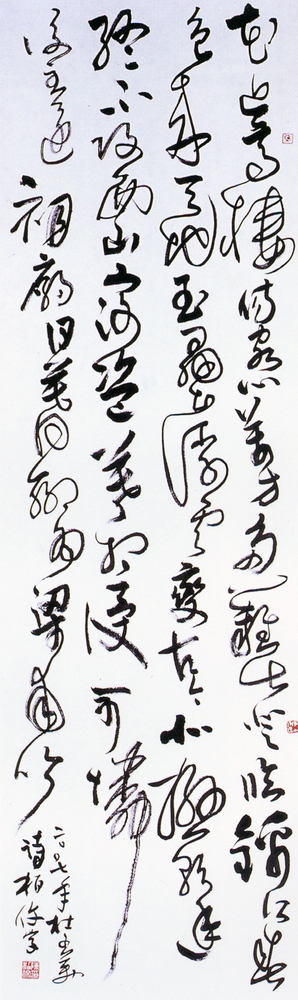 花近高樓傷客心萬方多難此登臨錦江春
色來天地玉壘浮雲變古今北極朝廷
終不改西山寇盜莫相侵可憐
後主還祠廟日暮聊為梁甫吟
二〇〇七年杜工部
詩柏字